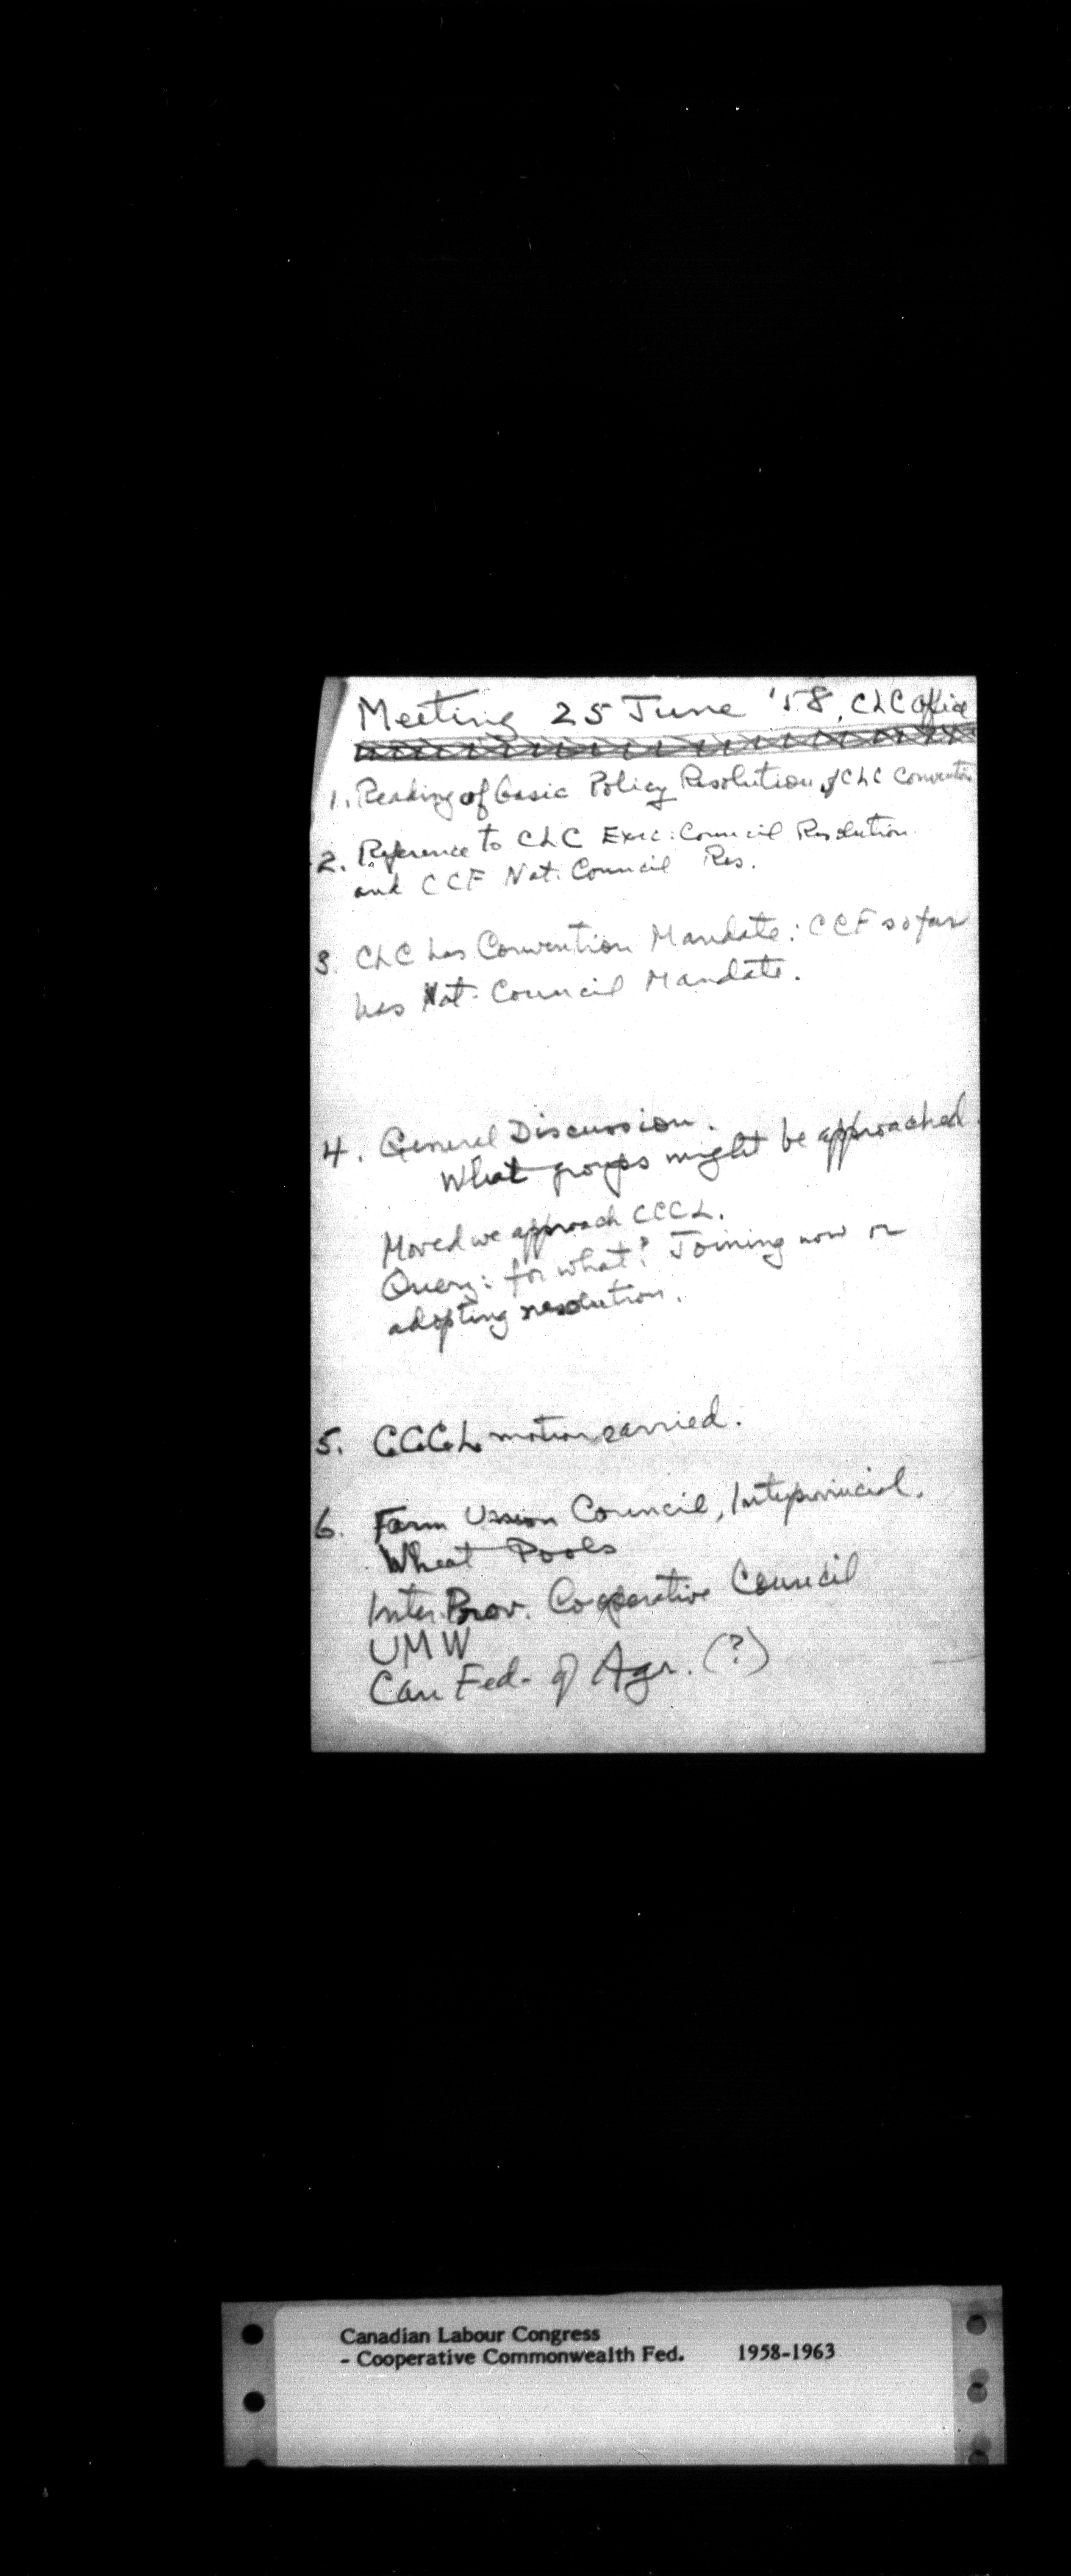 Meeting 25 June '58, CLC Office
1. Reading of basic Policy Resolution of CLC Convention
2. Reference to CLC Exec. Council Resolution
and CCF Nat. Council Res.
3. CLC has Convention Mandate: CCF so far
has Nat. Council Mandate.
4. General Discussion.
What groups might be approached.
Moved we approach CCCL.
Query: for what? Joining now or
adopting resolution.
5. C.C.C.L. motion carried.
6. Farm Union Council, Interprovincial.
Wheat Pools
Inter. Prov. Cooperative Council
UMW
Can Fed. of Agr. (?)
Canadian Labour Congress
- Cooperative Commonwealth Fed. 1958-1963